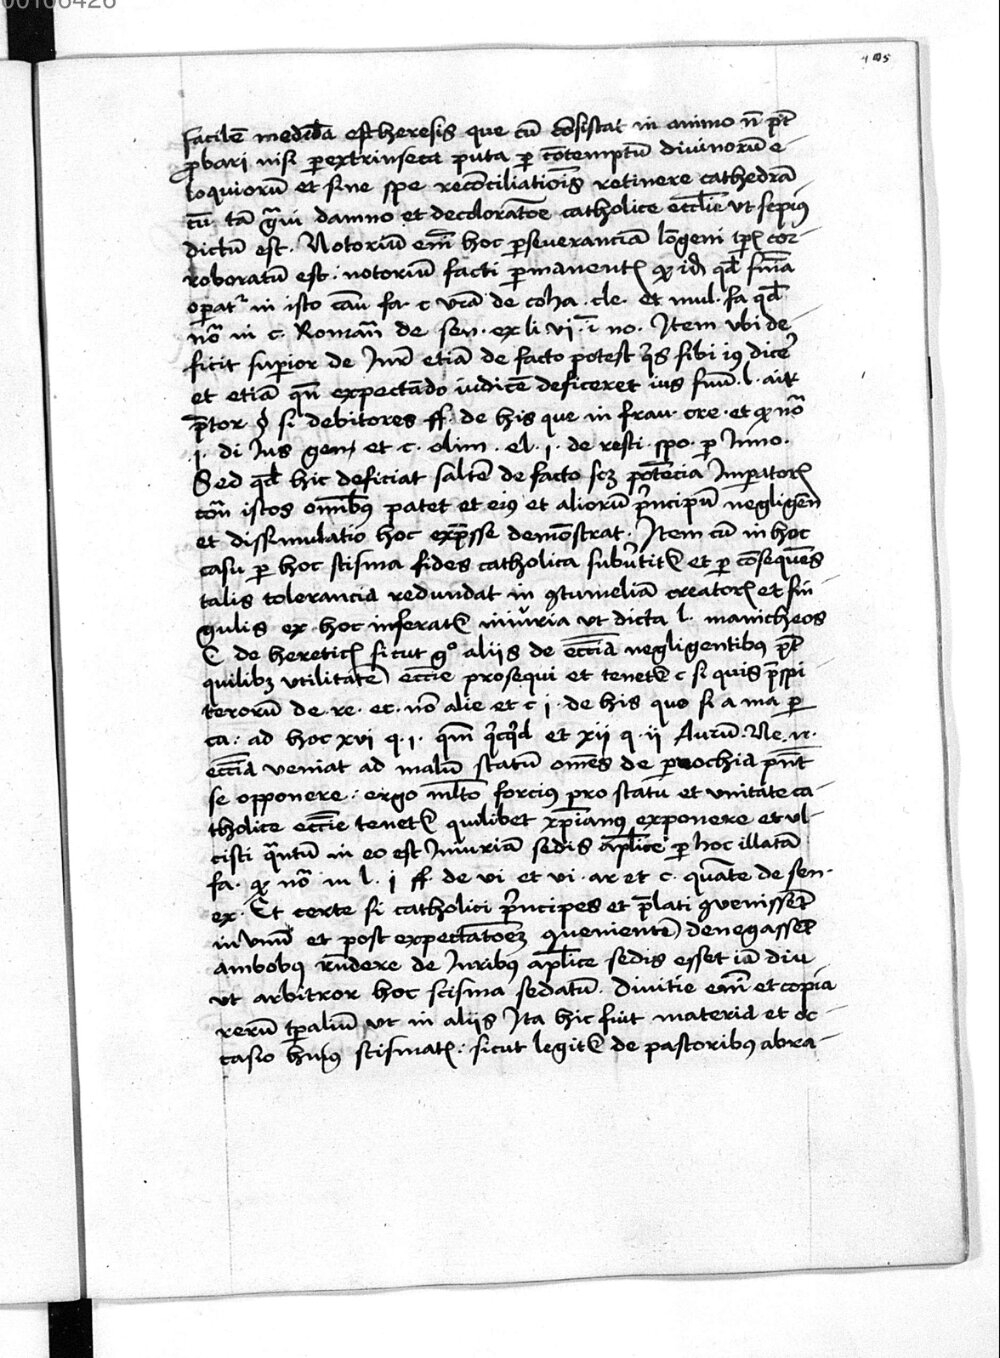 00106426
facilē est heresis que cū cōsistat in animo n̄ pt̄
ꝓbari nisi ꝑ extrinseca puta ꝑ cōtemptū divinorū e-
loquiorū et sine spe recōciliatiōis retinere cathedrā
cū tā gͣui damno et decoloratōe catholice eccl̄ie ut sepiꝰ
dictū est. Notoriū em̄ hoc ꝑseveranciā lōgeui tꝑis cor-
roboratū est : notoriū facti ꝑmanentꝭ qd̄
oꝑatʳ in isto cāu fa. c de coha. cle. et mul. fa qd̄
nō in c. Romān de sen. ex li vi. ī no. Item ubi de-
ficit suꝑior de Jur̄ etiā de facto potest qͥs sibi iꝰ dicē
et etiā qn̄ expectādo iudicē deficeret ius suū. l. ait
p̄tor § si debitores ff. de his que in frau. cre. et nō
.i. di Jus gen et c. olim. el. i. de resti. spo. ꝑ Inno.
Sed qd̄ hic deficiat saltē de facto scꝫ potēcia Imꝑatorꝭ
istos om̄ibꝰ patet et eiꝰ et aliorū pͥncipū negligēn
et dissimulatio hoc exp̄sse demōstrat. Item cū in hoc
casu ꝑ hoc scisma fides catholica et ꝑ cōsequēs
talis tolerancia redundat in ꝯtumeliā creatorꝭ et sin-
gulis ex hoc inferatꝭ iniuria ut dicta l. manicheos
C de hereticꝭ sicut gͦ aliis de ecc̄ia negligentibꝰ pt̄
quilibꝫ utilitatē ecc̄ie prosequi et tenetꝭ c si quis p̄spi
terorū de. re. ec. nō alie et c i. de his que fi a ma ꝑ
ca. ad hoc xvi q. i. et xii q. ii Aurū. Ne. n.
ecc̄ia veniat ad malū statū om̄es de ꝑrochia
se opponere : ergo ml̄to forciꝰ pro statu et unitate ca-
tholice ecc̄ie tenetꝭ quilibet xp̄ianꝰ exponere et ul-
cisti qͣntū in eo est Iniuriā sedis apl̄ice ꝑ hoc illatā
fa. nō in l. i ff. de vi et vi. ar et c. quāte de sen.
ex. Et certe si catholici pͥncipes et p̄lati ꝯvenissēt
in unū et post expectatōeꝫ ꝯvenientē denegassēt
ambobꝰ rn̄dere de Iuribꝰ apl̄ice sedis esset iā diu
ut arbitror hoc scisma sedatū. Divitie em̄ et copia
rerū tꝑaliū ut in aliis Ita hic fuit materia et oc-
casio huiꝰ scismatꝭ : sicut legitꝭ de pastoribꝰ abra-